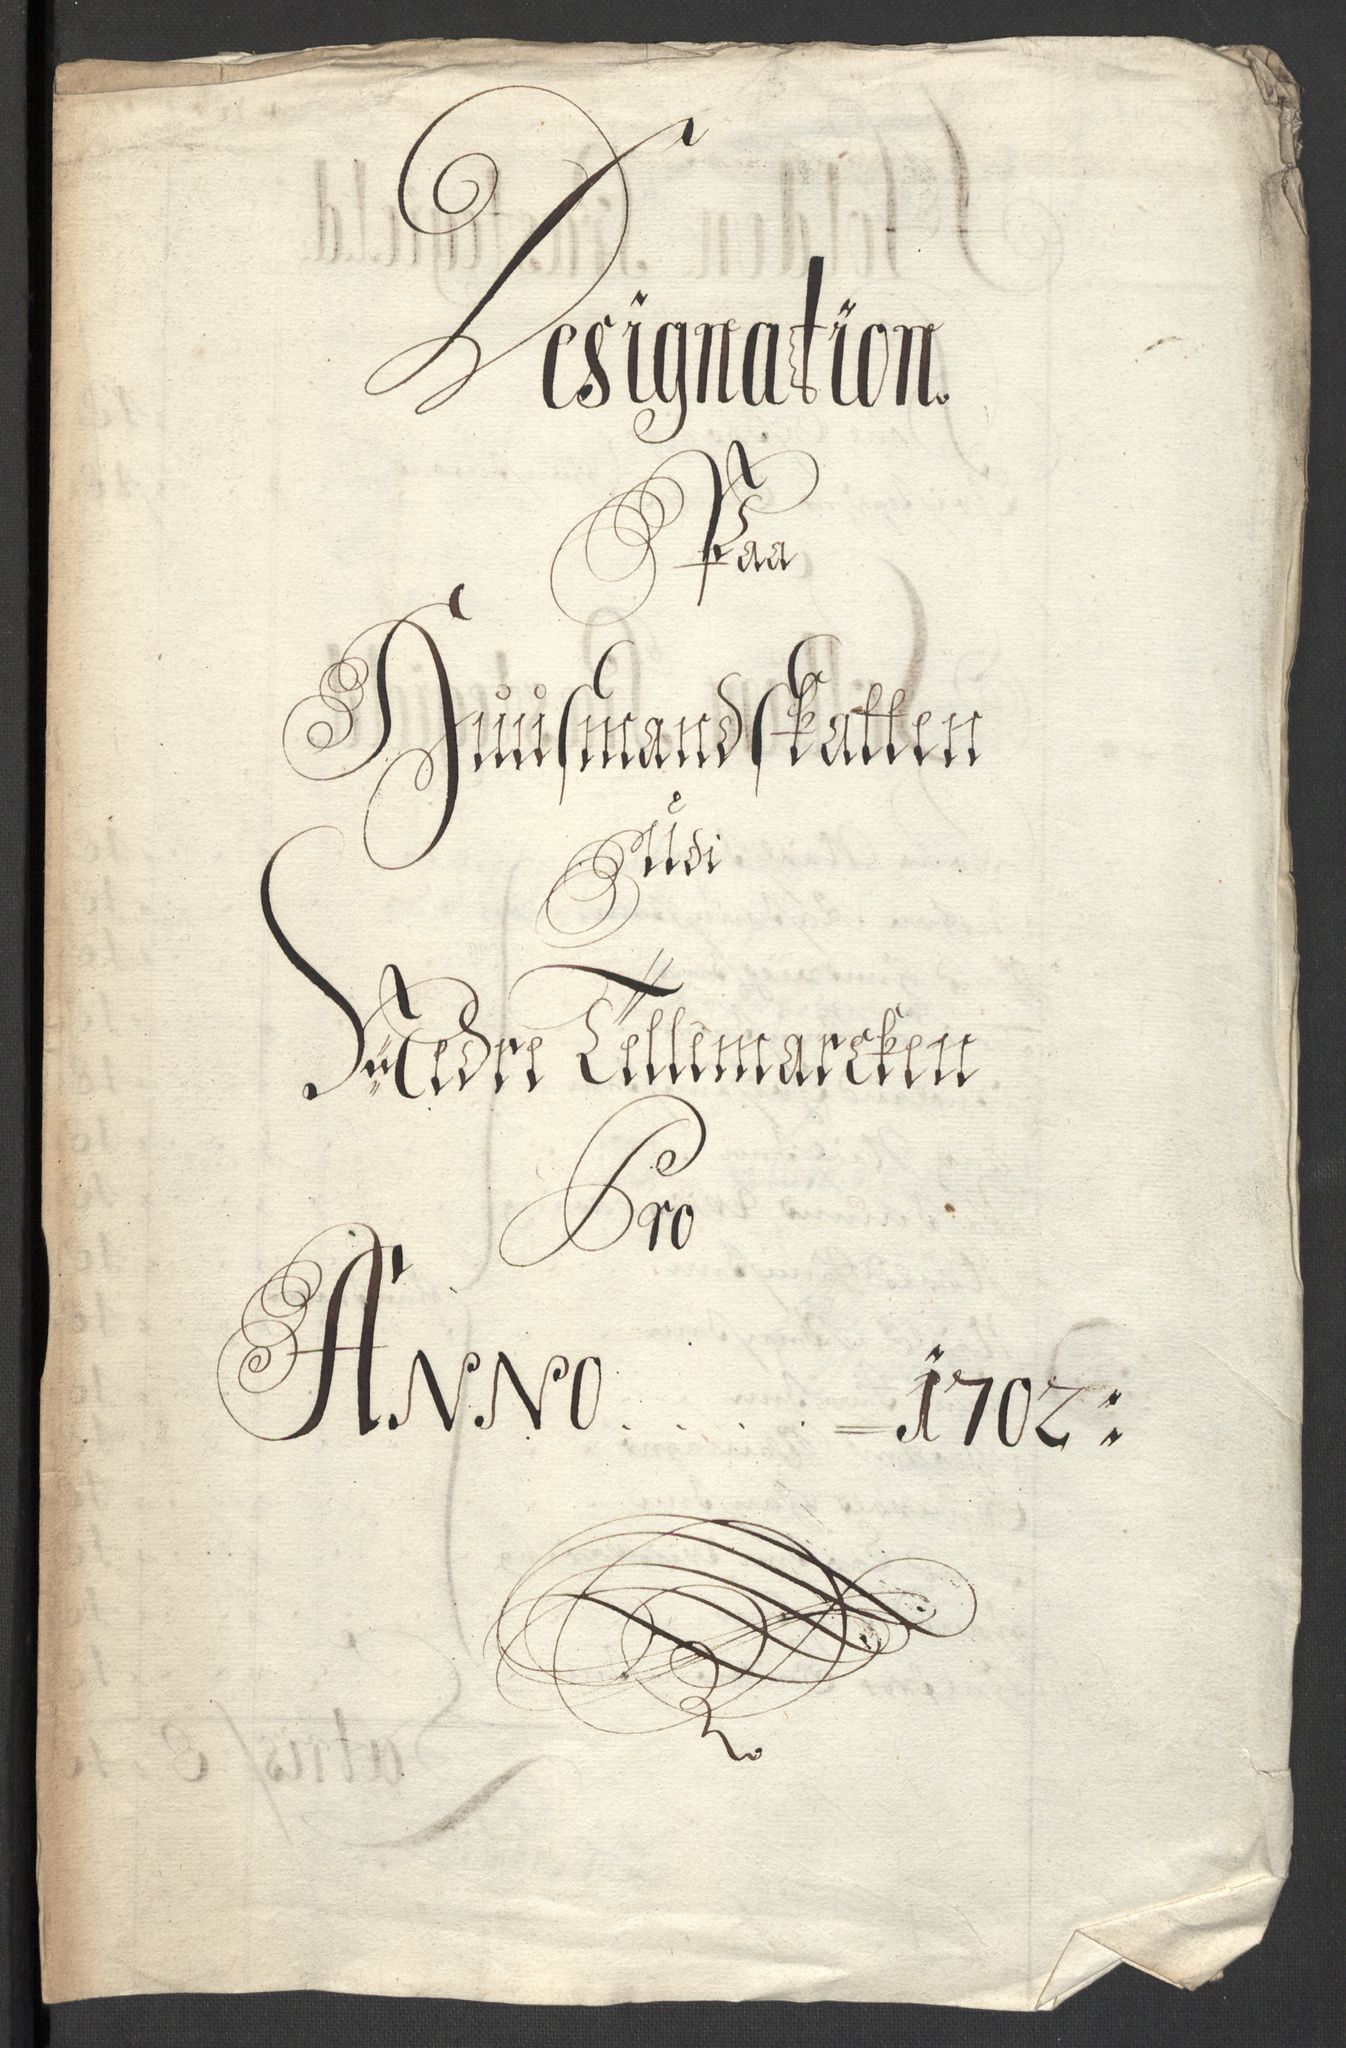 Designation.
Paa
Huusmandskatten
Udi
Nedre Tellemarcken
Pro
ANNO . . . . . = 1702 :